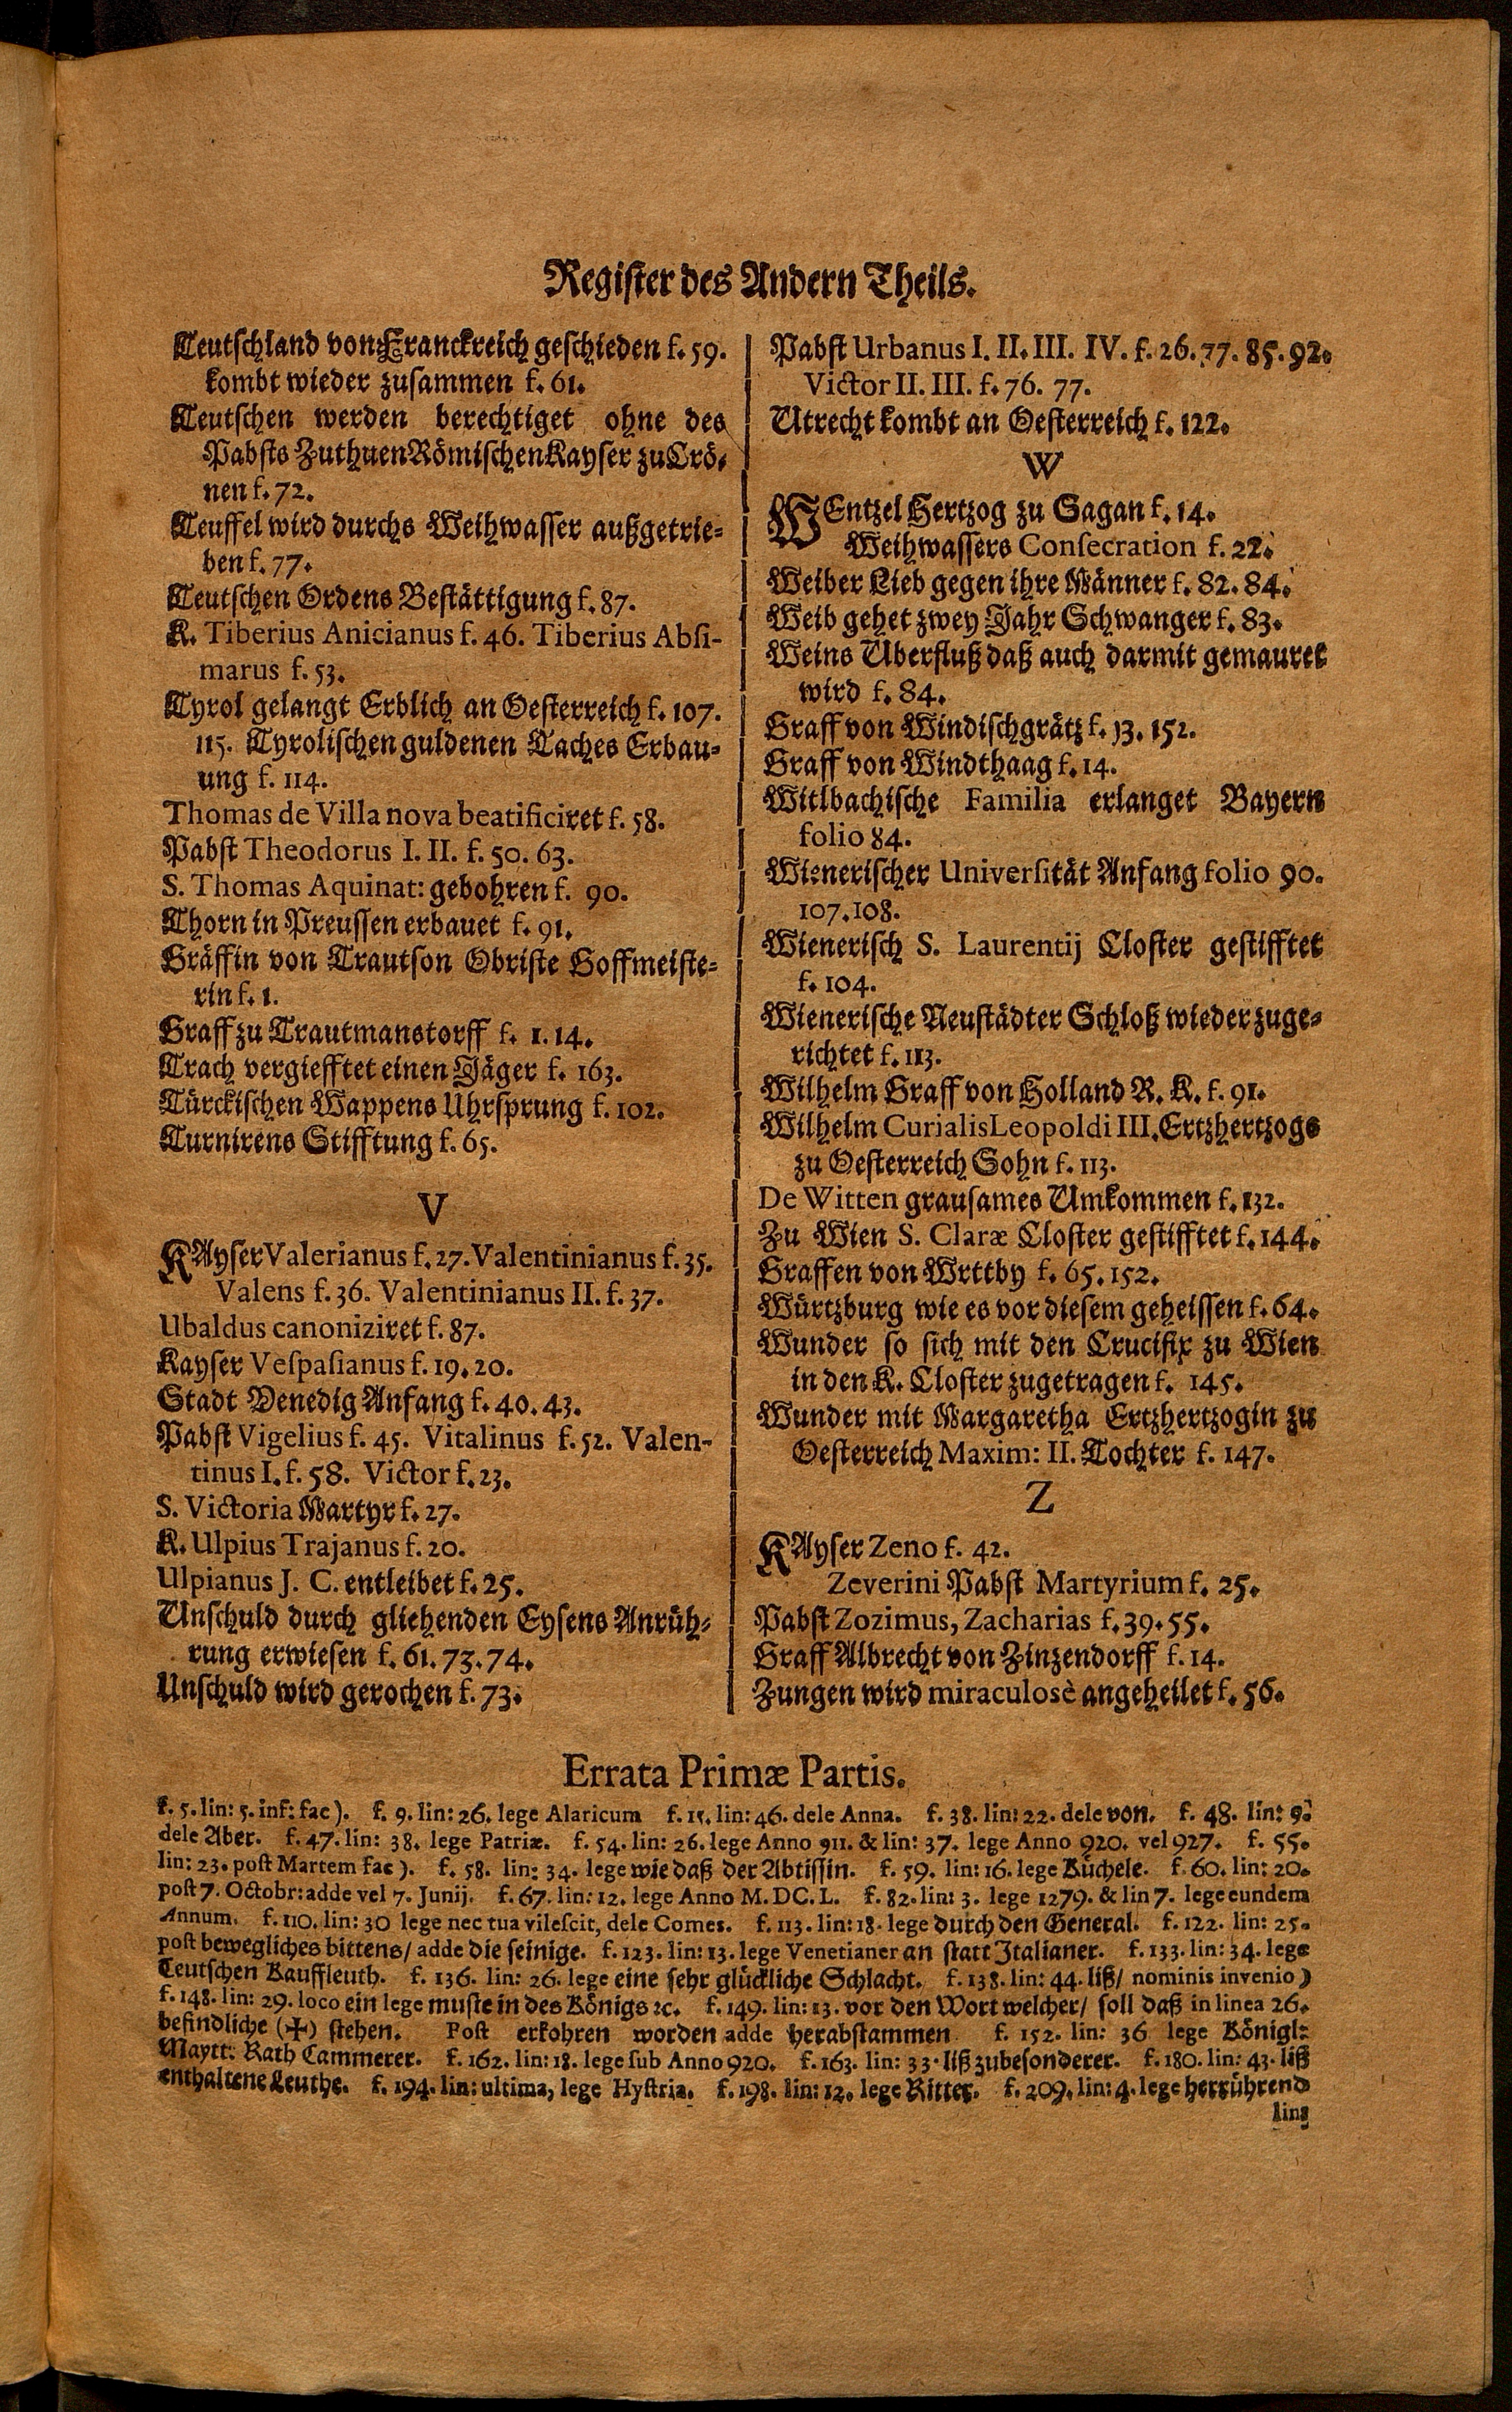 Register des Andern Theils.
Teutschland von Franckreich geschieden f. 59.
kombt wieder zusammen f. 61.
Teutschen werden berechtiget ohne des
Pabsts Zuthuen Römischen Kayser zu Crö-
nen f. 72.
Teuffel wird durchs Weihwasser außgetrie-
ben f. 77.
Teutschen Ordens Bestättigung f. 87.
K. Tiberius Anicianus f. 46. Tiberius Absi-
marus f. 53.
Tyrol gelangt Erblich an Oesterreich f. 107.
115. Tyrolischen guldenen Taches Erbau-
ung f. 114.
Thomas de Villa nova beatificiret f. 58.
Pabst Theodorus I. II. f. 50. 63.
S. Thomas Aquinat: gebohren f. 90.
Thorn in Preussen erbauet f. 91.
Gräffin von Trautson Obriste Hoffmeiste-
rin f. 1.
Graff zu Trautmanstorff f. 1. 14.
Trach vergiefftet einen Jäger f. 163.
Türckischen Wappens Uhrsprung f. 102.
Turnirens Stifftung f. 65.
V
KAyser Valerianus f. 27. Valentinianus f. 35.
Valens f. 36. Valentinianus II. f. 37.
Ubaldus canoniziret f. 87.
Kayser Vespasianus f. 19. 20.
Stadt Venedig Anfang f. 40. 43.
Pabst Vigelius f. 45. Vitalinus f. 52. Valen-
tinus I. f. 58. Victor f. 23.
S. Victoria Martyr f. 27.
K. Ulpius Trajanus f. 20.
Ulpianus J. C. entleibet f. 25.
Unschuld durch gliehenden Eysens Anrüh-
rung erwiesen f. 61. 73. 74.
Unschuld wird gerochen f. 73.
Pabst Urbanus I. II. III. IV. f. 26. 77. 85. 92.
Victor II. III. f. 76. 77.
Utrecht kombt an Oesterreich f. 122.
W
WEntzel Hertzog zu Sagan f. 14.
Weihwassers Consecration f. 22.
Weiber Lieb gegen ihre Männer f. 82. 84.
Weib gehet zwey Jahr Schwanger f. 83.
Weins Uberfluß daß auch darmit gemauret
wird f. 84.
Graff von Windischgrätz f. 13. 152.
Graff von Windthaag f. 14.
Witlbachische Familia erlanget Bayern
folio 84.
Wienerischer Universität Anfang folio 90.
107. 108.
Wienerisch S. Laurentij Closter gestifftet
f. 104.
Wienerische Neustädter Schloß wieder zuge-
richtet f. 113.
Wilhelm Graff von Holland R. K. f. 91.
Wilhelm Curialis Leopoldi III. Ertzhertzogs
zu Oesterreich Sohn f. 113.
De Witten grausames Umkommen f. 132.
Zu Wien S. Claræ Closter gestifftet f. 144.
Graffen von Wrttby f. 65. 152.
Würtzburg wie es vor diesem geheissen f. 64.
Wunder so sich mit den Crucifix zu Wien
in den K. Closter zugetragen f. 145.
Wunder mit Margaretha Ertzhertzogin zu
Oesterreich Maxim: II. Tochter f. 147.
Z
KAyser Zeno f. 42.
Zeverini Pabst Martyrium f. 25.
Pabst Zozimus, Zacharias f. 39. 55.
Graff Albrecht von Zinzendorff f. 14.
Zungen wird miraculosè angeheilet f. 56.
Errata Primæ Partis.
f. 5. lin: 5. inf: fac ). f. 9. lin: 26. lege Alaricum f. 15. lin: 46. dele Anna. f. 38. lin: 22. dele von. f. 48. lin: 9.
dele Aber. f. 47. lin: 38. lege Patriæ. f. 54. lin: 26. lege Anno 911. & lin: 37. lege Anno 920. vel 927. f. 55.
lin: 23. post Martem fac ). f. 58. lin: 34. lege wie daß der Abtissin. f. 59. lin: 16. lege Büchele. f. 60. lin: 20.
post 7. Octobr: adde vel 7. Junij. f. 67. lin: 12. lege Anno M. DC. L. f. 82. lin: 3. lege 1279. & lin 7. lege eundem
Annum. f. 110. lin: 30 lege nec tua vilescit, dele Comes. f. 113. lin: 18. lege durch den General. f. 122. lin: 25.
post bewegliches bittens/ adde die seinige. f. 123. lin: 13. lege Venetianer an statt Italianer. f. 133. lin: 34. lege
Teutschen Kauffleuth. f. 136. lin: 26. lege eine sehr glückliche Schlacht. f. 138. lin: 44. liß/ nominis invenio )
f. 148. lin: 29. loco ein lege muste in des Königs ꝛc. f. 149. lin: 13. vor den Wort welcher/ soll daß in linea 26.
befindliche (✠) stehen. Post erkohren worden adde herabstammen f. 152. lin: 36 lege Königl:
Maytt: Rath Cammerer. f. 162. lin: 18. lege sub Anno 920. f. 163. lin: 33. liß zubesonderer. f. 180. lin: 43. liß
enthaltene Leuthe. f. 194. lin: ultima, lege Hystria. f. 198. lin: 12. lege Ritter. f. 209. lin: 4. lege herrührend
lin: